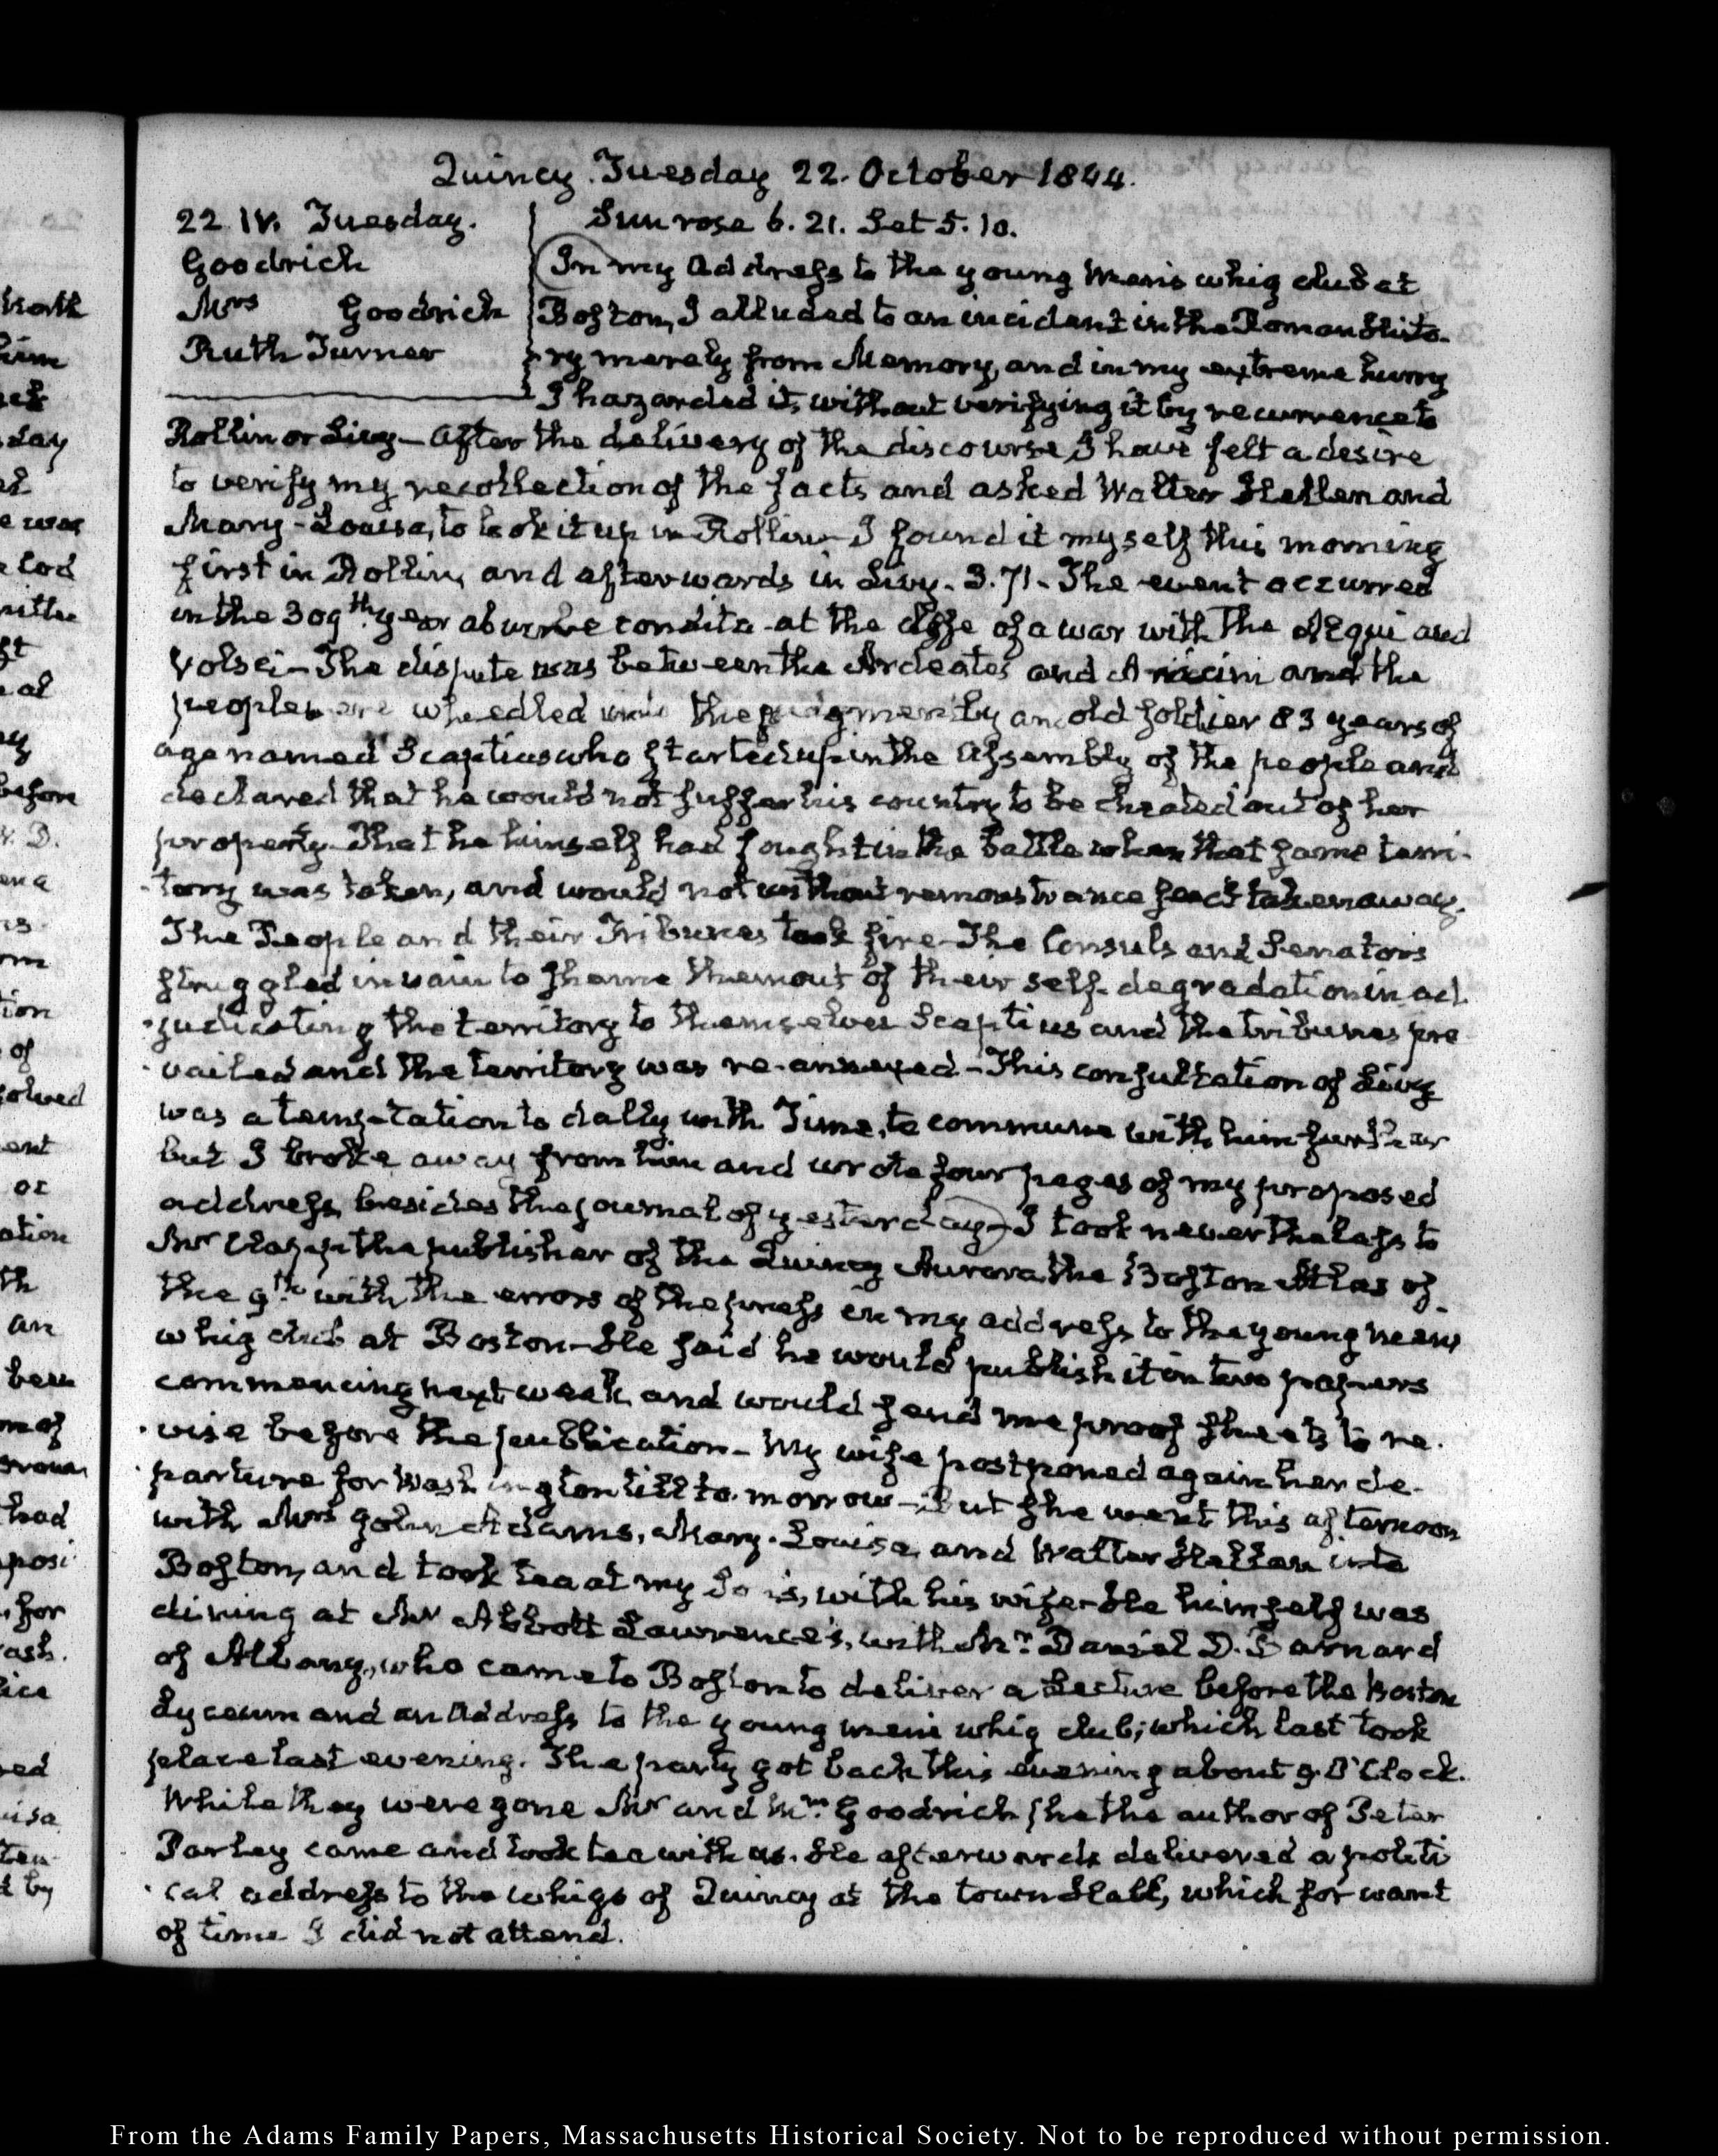 Quincy. Tuesday 22. October 1844.
22. IV. Tuesday.
Goodrich
Mrs Goodrich
Ruth Turner
Sun rose 6. 21. Set 5. 10.
In my Address to the young mens whig club at
Boston, I alluded to an incident in the Roman Histo-
ry merely from Memory, and in my extreme hurry
I hazarded it, without verifying it by recurrence to
Rollin or Livy — After the delivery of the discourse I have felt a desire
to verify my recollection of the facts and asked Walter Hellen and
Mary-Louisa, to look it up in Rollin — I found it myself this morning
first in Rollin, and afterwards in Livy. 3.71. The event occurred
in the 309th year ab urbe condita at the close of a war with the Æqui and
Volsci — The dispute was between the Ardeates and Aricini and the
people were wheedled into the judgment by an old soldier 83 years of
age named Scaptius who started up in the assembly of the people and
declared that he would not suffer his country to be cheated out of her
property. That he himself had fought in the battle when that same terri-
-tory was taken, and would not without remonstrance see it taken away.
The People and their Tribunes took fire — The Consuls and Senators
struggled in vain to shame them out of their self-degradation in ad-
-judicating the territory to themselves Scaptius and the tribunes pre
-vailed and the territory was re-annexed — This consultation of Livy
was a temptation to dally with Time, to commune with him further
but I broke away from him and wrote four pages of my proposed
address, besides the journal of yesterday — I took nevertheless to
Mr Clapp the publisher of the Quincy Aurora the Boston Atlas of
the 9th with the errors of the press in my address to the young mens
whig club at Boston — He said he would publish it in two papers
commencing next week, and would send me proof sheets to re-
-vise before the publication — My wife postponed again her de-
-parture for Washington till to-morrow — But she went this afternoon
with Mrs John Adams, Mary-Louisa, and Walter Hellen into
Boston, and took tea at my Son's, with his wife — He himself was
dining at Mr Abbott Lawrence's, with Mr. Daniel D. Barnard
of Albany, who came to Boston to deliver a Lecture before the Boston
Lyceum and an Address to the young mens whig club; which last took
place last evening. The party got back this evening about 9. O'Clock.
While they were gone Mr and Mrs. Goodrich, he the author of Peter
Parley came and took tea with us. He afterwards delivered a politi
-cal address to the whigs of Quincy at the town Hall, which for want
of time I did not attend.
From the Adams Family Papers, Massachusetts Historical Society. Not to be reproduced without permission.